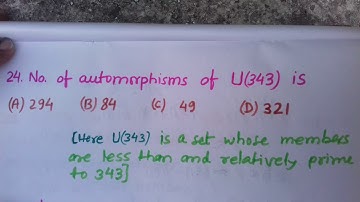 24. No. of automorphisms of U(343) is
(A) 294 (B) 84 (C) 49 (D) 321
[Here U(343) is a set whose members
are less than and relatively prime
to 343]